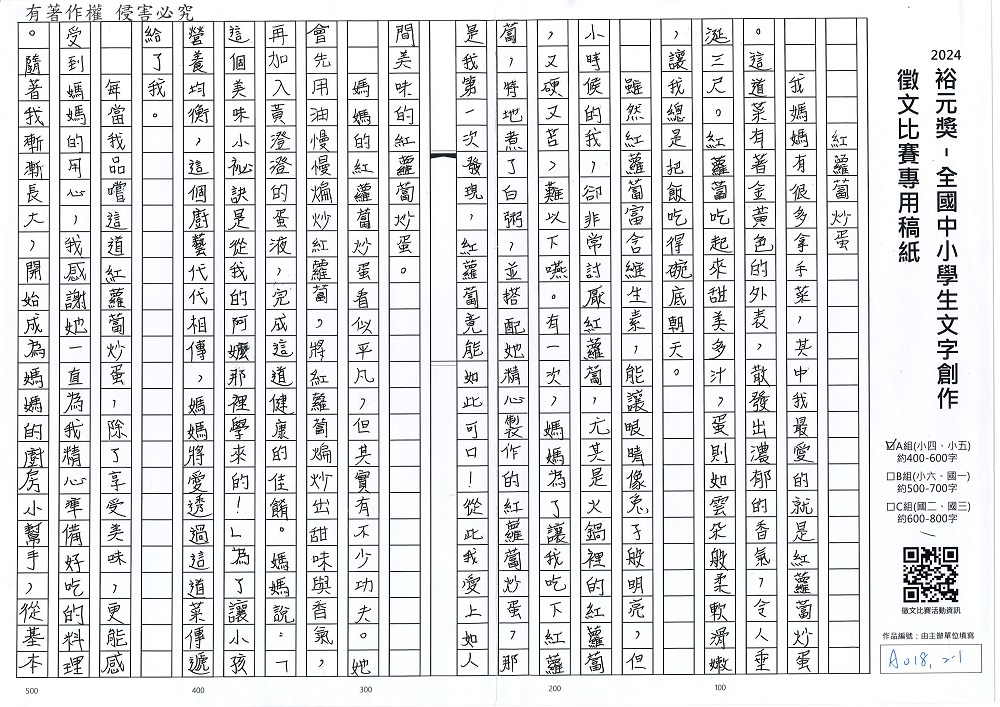 有著作權 侵害必究
2024
裕元獎-全國中小學生文字創作
徵文比賽專用稿紙
☑A組(小四、小五)
約400-600字
□B組(小六、國一)
約500-700字
□C組(國二、國三)
約600-800字
徵文比賽活動資訊
作品編號:由主辦單位填寫
A018, 2-1
紅蘿蔔炒蛋
我媽媽有很多拿手菜,其中我最愛的就是紅蘿蔔炒蛋
。這道菜有著金黃色的外表,散發出濃郁的香氣,令人垂
涎三尺。紅蘿蔔吃起來甜美多汁,蛋則如雲朵般柔軟滑嫩
,讓我總是把飯吃得碗底朝天。
雖然紅蘿蔔富含維生素,能讓眼睛像兔子般明亮,但
小時候的我,卻非常討厭紅蘿蔔,尤其是火鍋裡的紅蘿蔔
,又硬又苦,難以下嚥。有一次,媽媽為了讓我吃下紅蘿
蔔,特地煮了白粥,並搭配她精心製作的紅蘿蔔炒蛋,那
是我第一次發現,紅蘿蔔竟能如此可口!從此我愛上如人
間美味的紅蘿蔔炒蛋。
媽媽的紅蘿蔔炒蛋看似平凡,但其實有不少功夫。她
會先用油慢慢煸炒紅蘿蔔,將紅蘿蔔煸炒出甜味與香氣,
再加入黃澄澄的蛋液,完成這道健康的佳餚。媽媽說:「
這個美味小祕訣是從我的阿嬤那裡學來的!」為了讓小孩
營養均衡,這個廚藝代代相傳,媽媽將愛透過這道菜傳遞
給了我。
每當我品嚐這道紅蘿蔔炒蛋,除了享受美味,更能感
受到媽媽的用心,我感謝她一直為我精心準備好吃的料理
。隨著我漸漸長大,開始成為媽媽的廚房小幫手,從基本
100
200
300
400
500